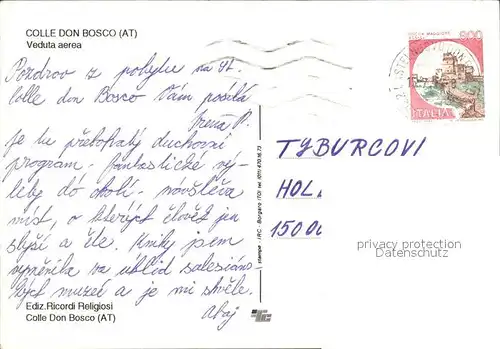 COLLE DON BOSCO (AT)
Veduta aerea
Pozdrov z pobytu na St.
Colle don Bosco Vám posílá
Irena P.
Je tu přebohatý duchovní
program. Fantastické vý-
lety do okolí. návštěva
míst, o kterých člověk jen
slyší a čte. Knihy jsem
vyměnila za úklid salesiáns-
kých muzeí a je mi skvěle.
Ahoj
Ediz.Ricordi Religiosi
Colle Don Bosco (AT)
stampa - IRC - Borgaro (TO) tel. (011) 470.16.73
ROCCA MAGGIORE
ASSISI
600
ITALIA
TYBURCOVI
HOL
15000
privacy protection
Datenschutz